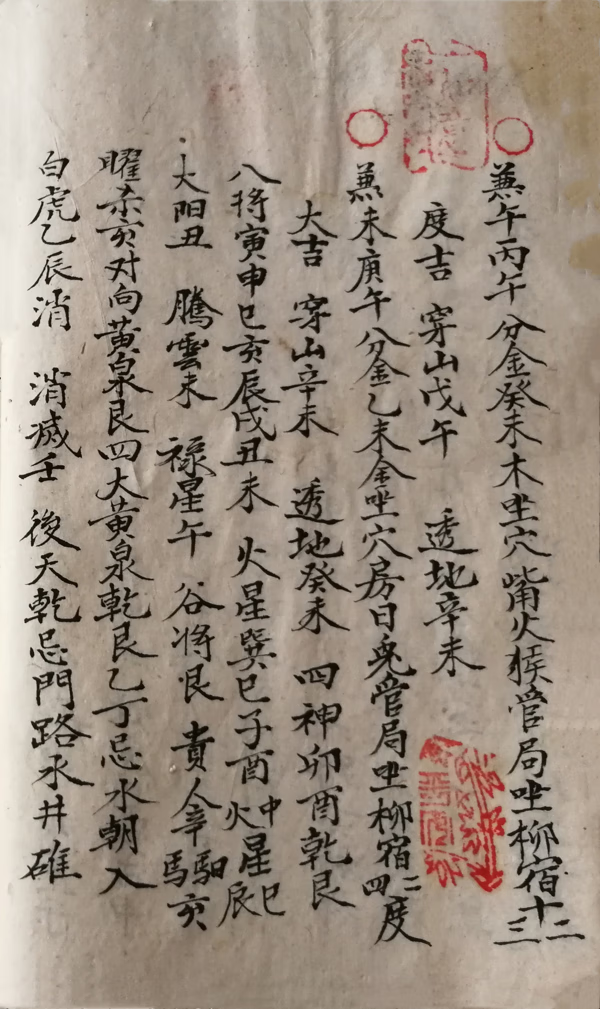 兼午丙午分金癸未木坐穴觜火猴管局坐柳宿十二三
度吉 穿山戊午 透地辛未
兼未庚午分金乙未金坐穴房日兔管局坐柳宿二四度
大吉 穿山辛未 透地癸未 四神卯酉乾艮
八将寅申巳亥辰戌丑未 火星巽巳子酉中火星巳辰
太阳丑 騰雲未 禄星午 谷将艮 貴人辛 馹馬亥
曜亥对向黄泉艮四大黄泉乾艮乙丁忌水朝入
白虎乙辰消 消滅壬 後天乾忌門路水井碓